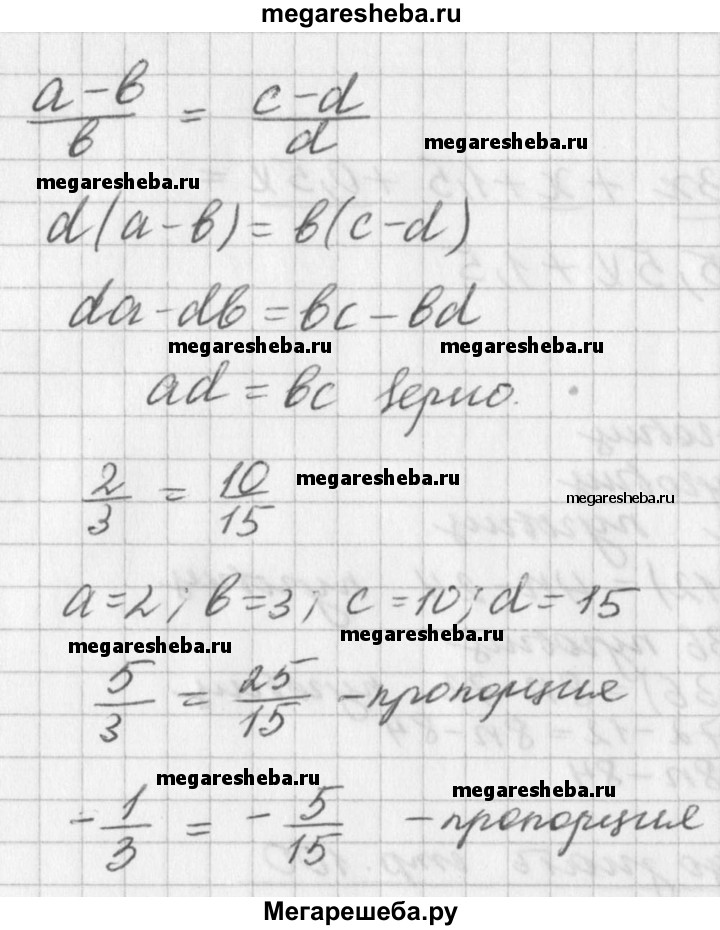 megaresheba.ru
a-b/b = c-d/d
megaresheba.ru
megaresheba.ru
d(a-b) = b(c-d)
da-db = bc-bd
megaresheba.ru megaresheba.ru
ad = bc верно.
2/3 = 10/15
megaresheba.ru
megaresheba.ru
a=2; b=3; c=10; d=15
megaresheba.ru megaresheba.ru
5/3 = 25/15 -пропорция
megaresheba.ru megaresheba.ru
-1/3 = -5/15 -пропорция
Мегарешеба.ру